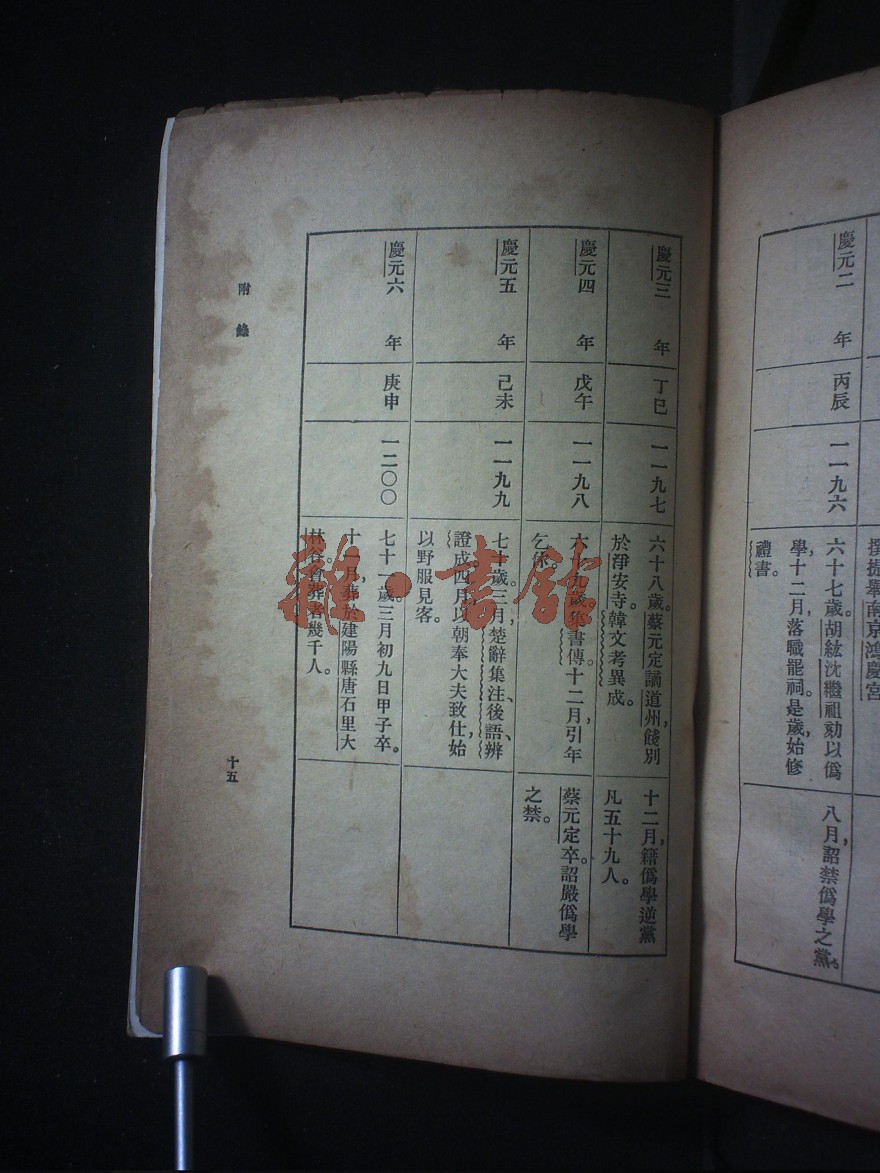 撰提舉南京鴻慶宮
慶元二年
丙辰
一一九六
六十七歲。胡紘沈繼祖劾以僞
學,十二月,落職罷祠。是歲始修
禮書。
八月,詔禁僞學之黨。
慶元三年
丁巳
一一九七
六十八歲。蔡元定謫道州,餞別
於淨安寺。韓文考異成。
十二月,籍僞學逆黨
凡五十九人。
慶元四年
戊午
一一九八
六十九歲。集書傳。十二月,引年
乞休。
蔡元定卒。詔嚴僞學
之禁。
慶元五年
己未
一一九九
七十歲。三月,楚辭集注、後語、辨
證成四月,以朝奉大夫致仕,始
以野服見客。
慶元六年
庚申
一二〇〇
七十一歲。三月初九日甲子卒。
十一月,葬於建陽縣唐石里大
林谷。會葬者幾千人。
附錄
十五
雜·書館